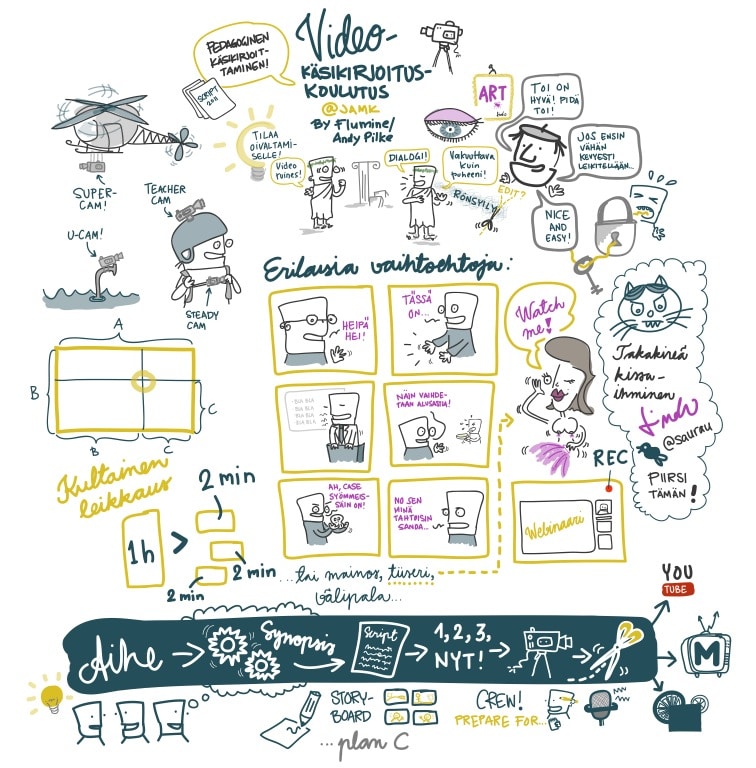 PEDAGOGINEN
KÄSIKIRJOIT-
TAMINEN!
SCRIPT
Video-
KÄSIKIRJOITUS-
KOULUTUS
@JAMK
By Flumine/
Andy Pilke
TILAA
OIVALTAMI-
SELLE!
Video
ruines!
DIALOGI!
Vakuuttava
kuin
puheeni!
RÖNSYILY
EDIT?
ART
TOI ON
HYVÄ! PIDÄ
TOI!
JOS ENSIN
VÄHÄN
KEVYESTI
LEIKITELLÄÄN..
NICE
AND
EASY!
SUPER-
CAM!
TEACHER
CAM
U-CAM!
STEADY
CAM
Erilaisia vaihtoehtoja:
HEIPÄ
HEI!
TÄSSÄ
ON...
BLA BLA
BLA BLA
BLA BLA
BLA BLA
NÄIN VAIHDE-
TAAN ALUSASIA!
AH, CASE
SYÖMMEIS-
SÄIN ON!
NO SEN
MINÄ
TAHTOISIN
SANOA...
Watch
me!
Takakireä
kissa-
ihminen
Linda
@saurau
PIIRSI
TÄMÄN!
REC
Webinaari
A
B
C
B
C
Kultainen
leikkaus
1h
>
2 min
2 min
2 min
...tai mainos, tiiseri,
välipala...
YOU
TUBE
M
Aihe
Synopsis
Script
1, 2, 3,
NYT!
STORY-
BOARD
CREW!
PREPARE FOR...
...plan C